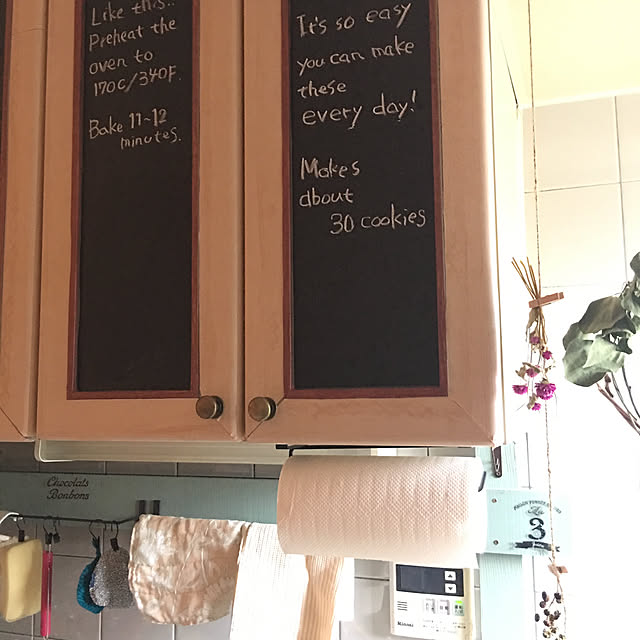 Like this..
Preheat the
oven to
170C/340F.
Bake 11~12
minutes.
It's so easy
you can make
these
every day!
Makes
about
30 cookies
Chocolats
Bonbons
3